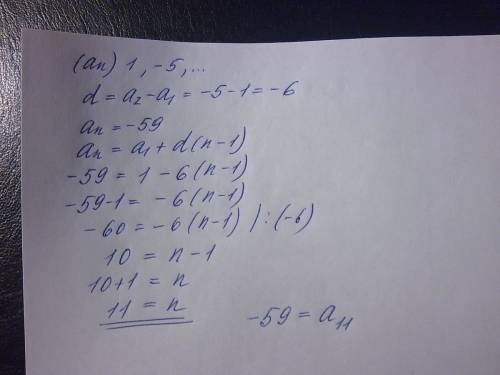 (an) 1, -5, ...
d = a₂ - a₁ = -5 - 1 = -6
an = -59
an = a₁ + d(n-1)
-59 = 1 - 6(n-1)
-59-1 = -6(n-1)
-60 = -6(n-1) | : (-6)
10 = n - 1
10+1 = n
11 = n -59 = a₁₁